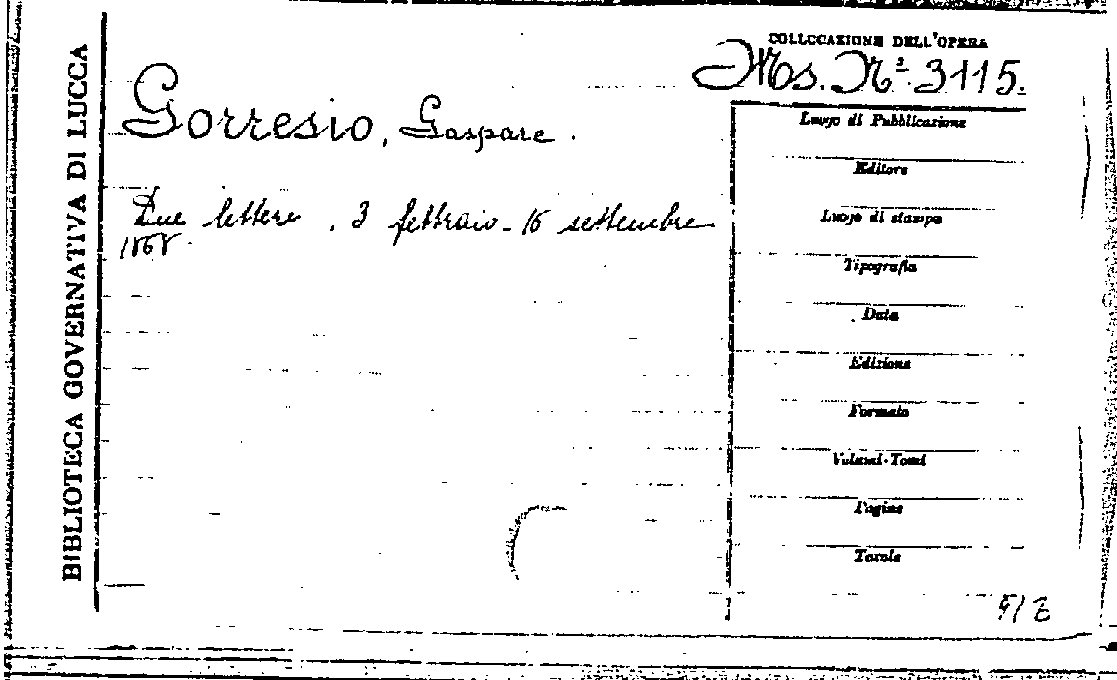 BIBLIOTECA GOVERNATIVA DI LUCCA
COLLOCAZIONE DELL'OPERA
Ms. N.º 3115.
Gorresio, Gaspare.
Due lettere, 3 febbraio - 16 settembre
1868.
Luogo di Pubblicazione
Editore
Luogo di stampa
Tipografia
Data
Edizione
Formato
Volumi-Tomi
Pagine
Tavole